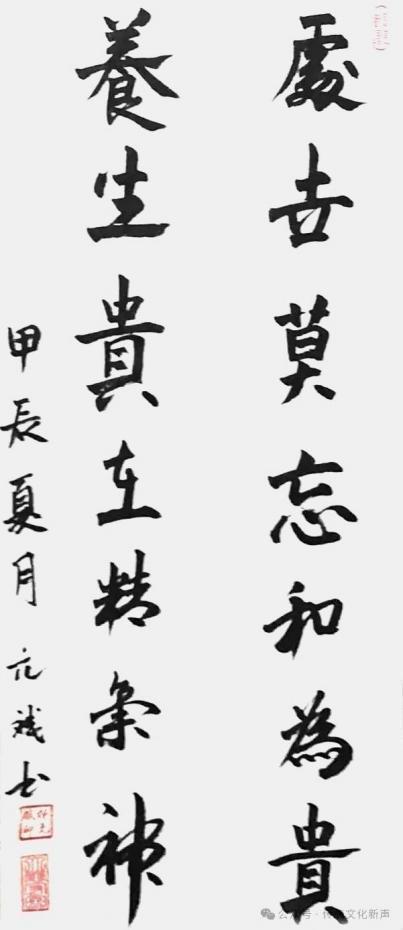 處世莫忘和為貴
養生貴在精氣神
甲辰夏月 书
公众号·传统文化新声